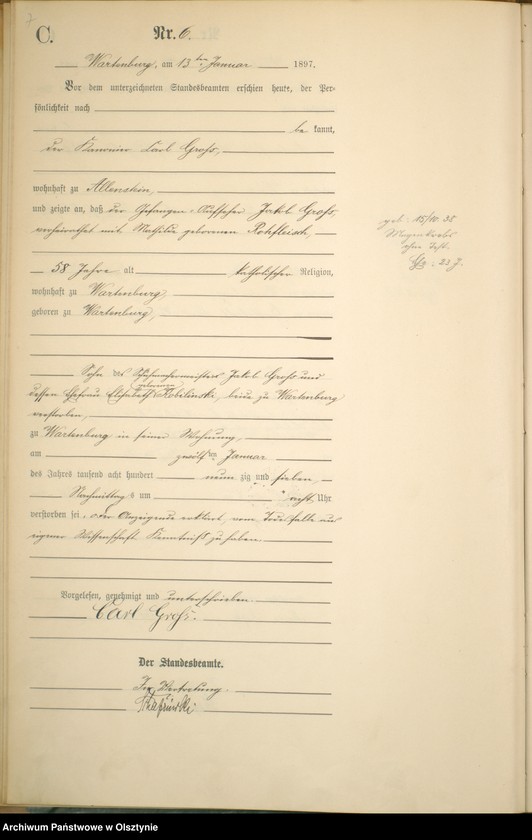 7
C.
Nr. 6.
Wartenburg, am 13ten Januar 1897.
Vor dem unterzeichneten Standesbeamten erschien heute, der Per-
sönlichkeit nach
be kannt,
der Kanonier Carl Groß,
wohnhaft zu Allenstein,
und zeigte an, daß der Gefangen-Aufseher Jakob Groß,
verheirathet mit Mathilde geborenen Rohfleisch,
58 Jahre alt katholischer Religion,
wohnhaft zu Wartenburg
geboren zu Wartenburg,
Sohn des Schuhmachermeisters Jakob Groß und
dessen Ehefrau Elisabeth geborenen Kobilinski, beide zu Wartenburg
verstorben,
zu Wartenburg in seiner Wohnung,
am zwölften Januar
des Jahres tausend acht hundert neun zig und sieben
Nachmittags um acht Uhr
verstorben sei, der Anzeigende erklärt, vom Todesfalle aus
eigener Wissenschaft Kenntniß zu haben.
Vorgelesen, genehmigt und unterschrieben.
Carl Groß.
Der Standesbeamte.
In Vertretung.
geb. 15/11. 38
Magenkrebs
ohne Test.
23 J.
Archiwum Państwowe w Olsztynie